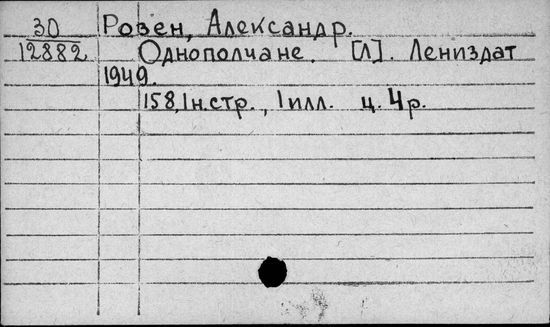 30 Розен, Александр.
12882 Однополчане. [Л]. Лениздат
1949.
158, 1 н.стр., 1 илл. ц. 4 р.